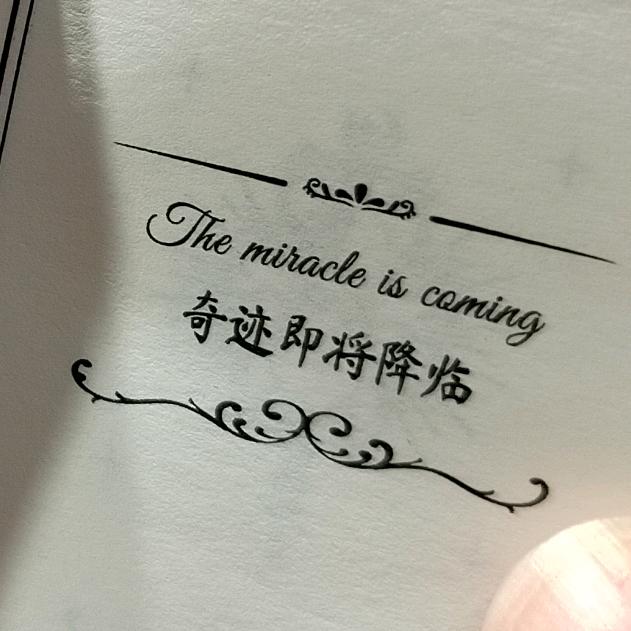 The miracle is coming
奇迹即将降临